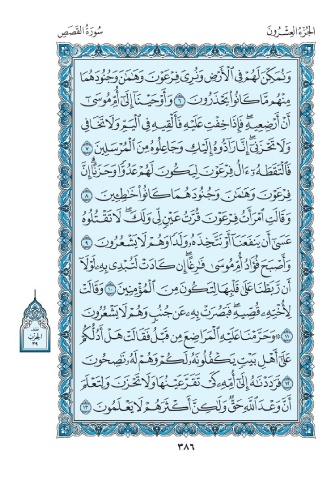 الجزء العشرون
سورة القصص
ونمكن لهم في الأرض ونري فرعون وهامان وجنودهما
منهم ما كانوا يحذرون ٦ وأوحينا إلى أم موسى
أن أرضعيه فإذا خفت عليه فألقيه في اليم ولا تخافي
ولا تحزني إنا رادوه إليك وجاعلوه من المرسلين ٧
فالتقطه ءال فرعون ليكون لهم عدوا وحزنا إن
فرعون وهامان وجنودهما كانوا خاطئين ٨
وقالت امرأت فرعون قرت عين لي ولك لا تقتلوه
عسى أن ينفعنا أو نتخذه ولدا وهم لا يشعرون ٩
وأصبح فؤاد أم موسى فارغا إن كادت لتبدي به لولا
أن ربطنا على قلبها لتكون من المؤمنين ١٠ وقالت
لأخته قصيه فبصرت به عن جنب وهم لا يشعرون
١١ وحرمنا عليه المراضع من قبل فقالت هل أدلكم
على أهل بيت يكفلونه لكم وهم له ناصحون
١٢ فرددناه إلى أمه كي تقر عينها ولا تحزن ولتعلم
أن وعد الله حق ولكن أكثرهم لا يعلمون ١٣
الحزب
٣٩
٣٨٦